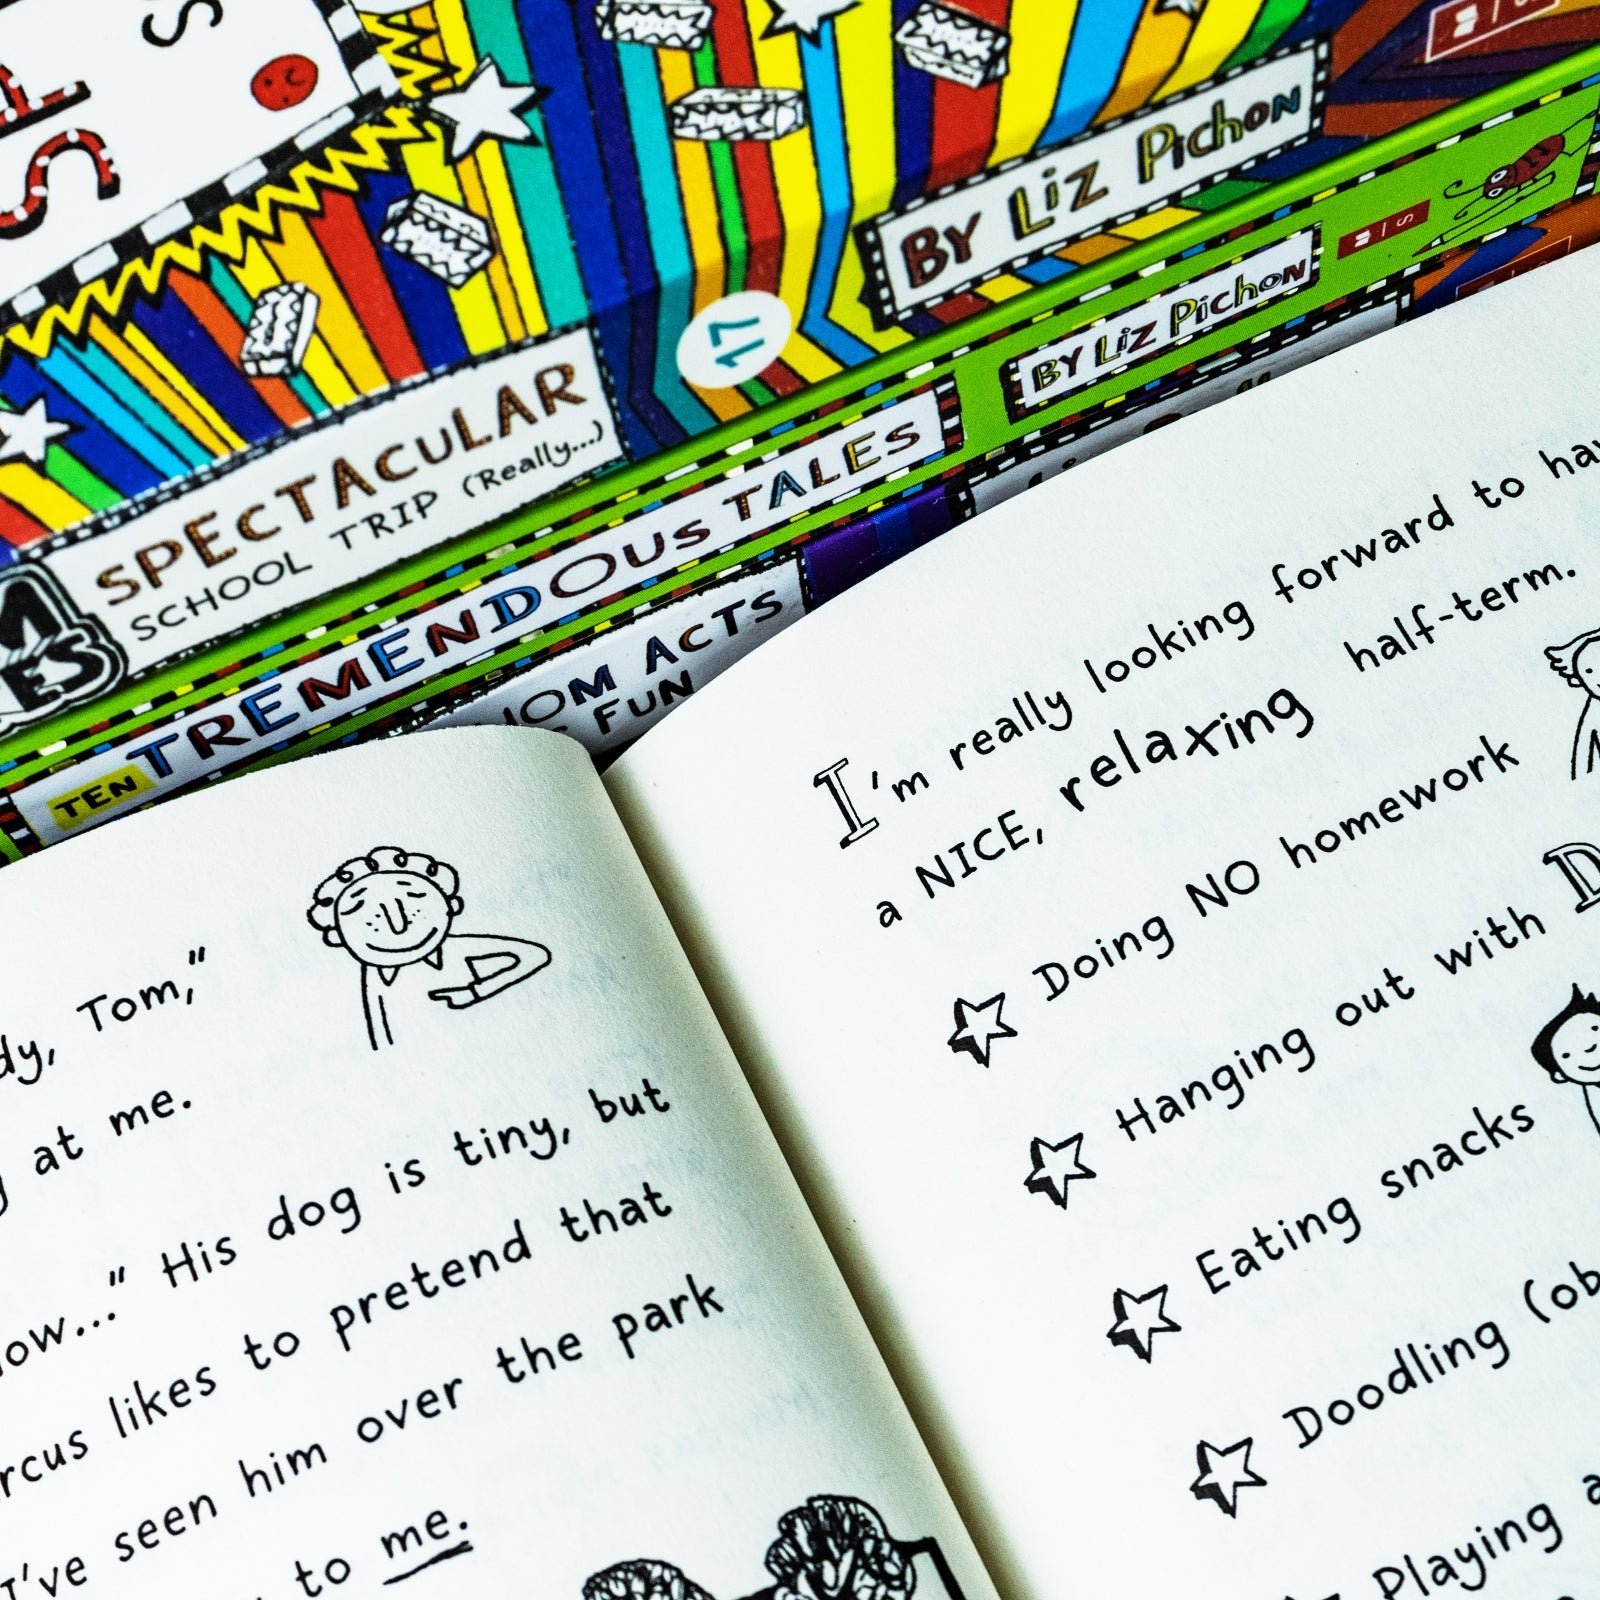 S
BY Liz Pichon
17
SPECTACULAR
SCHOOL TRIP (Really...)
BY Liz Pichon
TEN TREMENDOUS TALES
ACTS
FUN
Tom,"
at me.
His dog is tiny, but
likes to pretend that
I've seen him over the park
to me.
I'm really looking forward to
a NICE, relaxing half-term.
Doing NO homework
Hanging out with
Eating snacks
Doodling
Playing